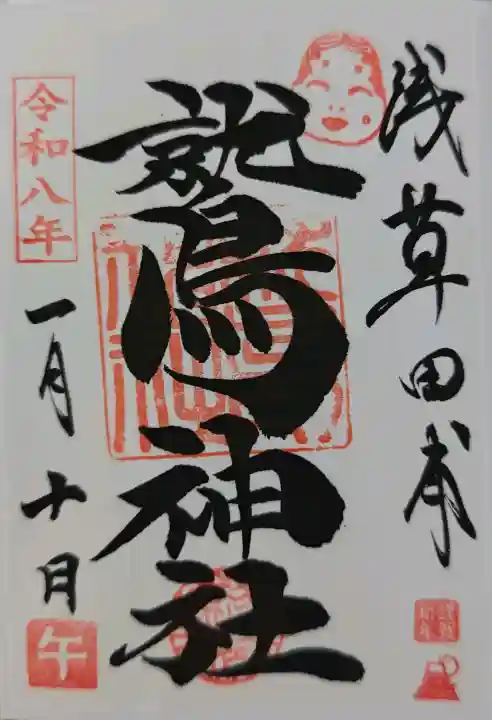 浅草田甫
鷲神社
令和八年
一月十日
午